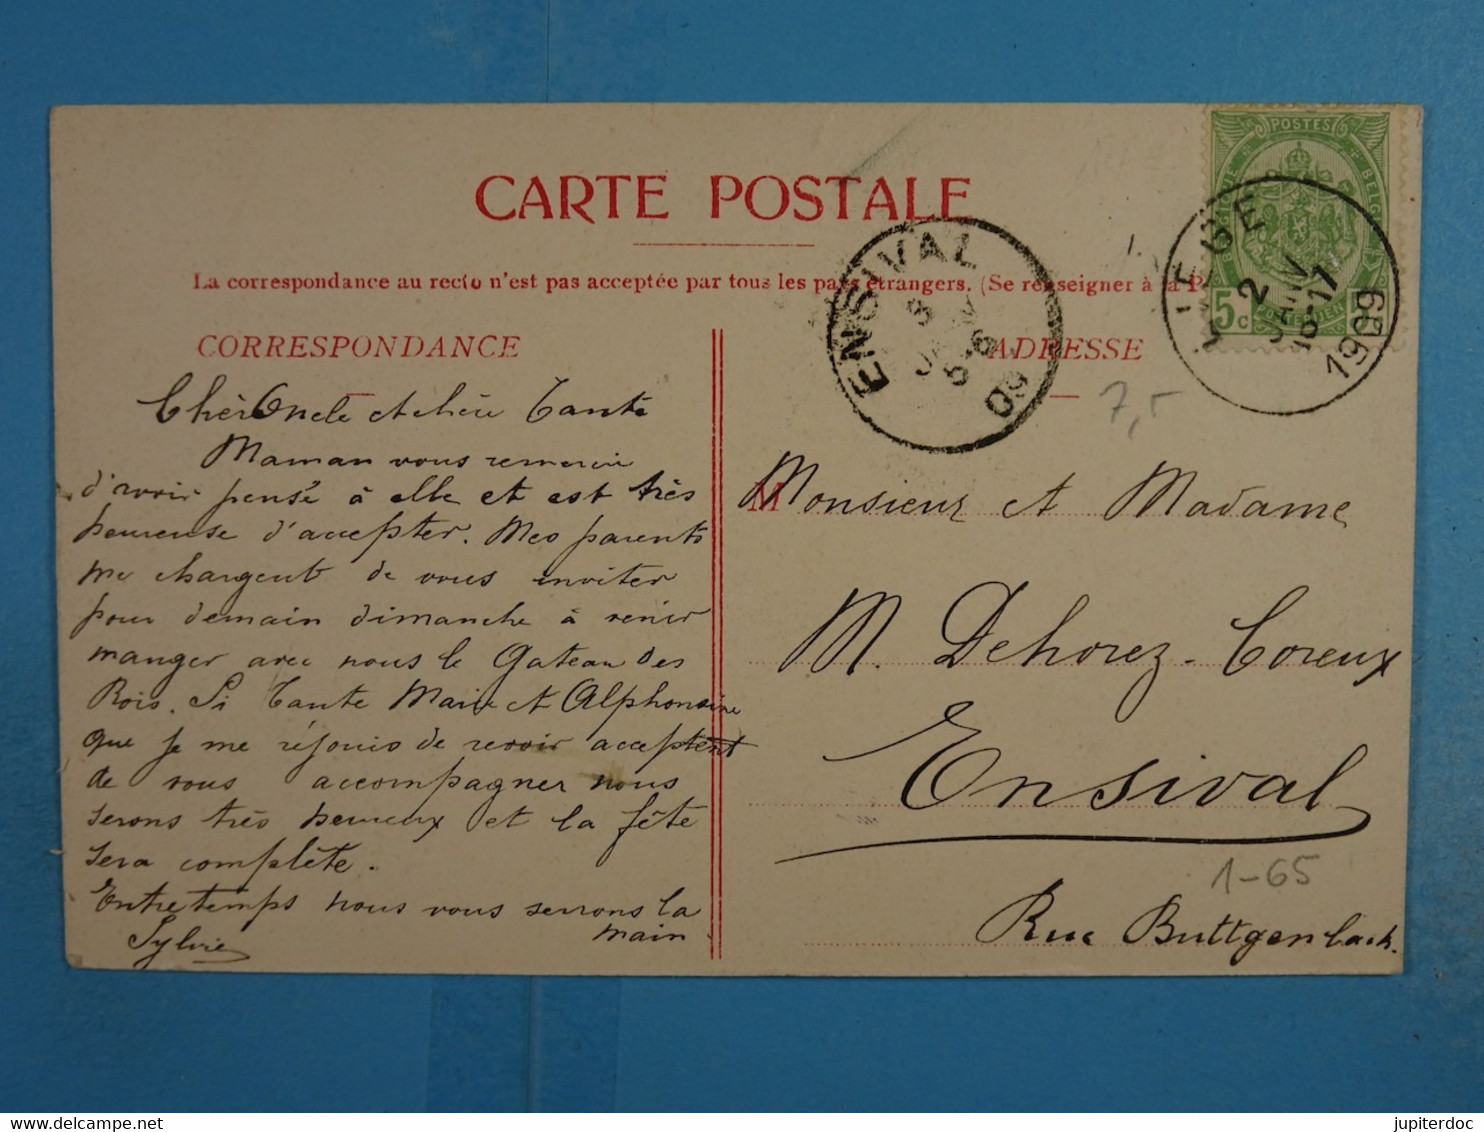 CARTE POSTALE
La correspondance au recto n'est pas acceptée par tous les pays étrangers. (Se renseigner à la P
POSTES
BELGIQUE
BELGIË
5 c
LIEGE
2
JANV
16-17
1909
ENSIVAL
3
JANV
5-6
09
CORRESPONDANCE
ADRESSE
7,5
Cher Oncle et chère Tante
Maman vous remercie
d'avoir pensé à elle et est très
heureuse d'accepter. Mes parents
me chargent de vous inviter
pour demain dimanche à venir
manger avec nous le Gateau des
Rois. Si Tante Marie et Alphonsine
que je me réjouis de revoir acceptent
de vous accompagner nous
serons très heureux et la fête
sera complète.
Entretemps nous vous serrons la
main.
Sylvie
Monsieur et Madame
M. Dehorez-Coreux
Ensival
1-65
Rue Buttgenbach.
www.delcampe.net
jupiterdoc